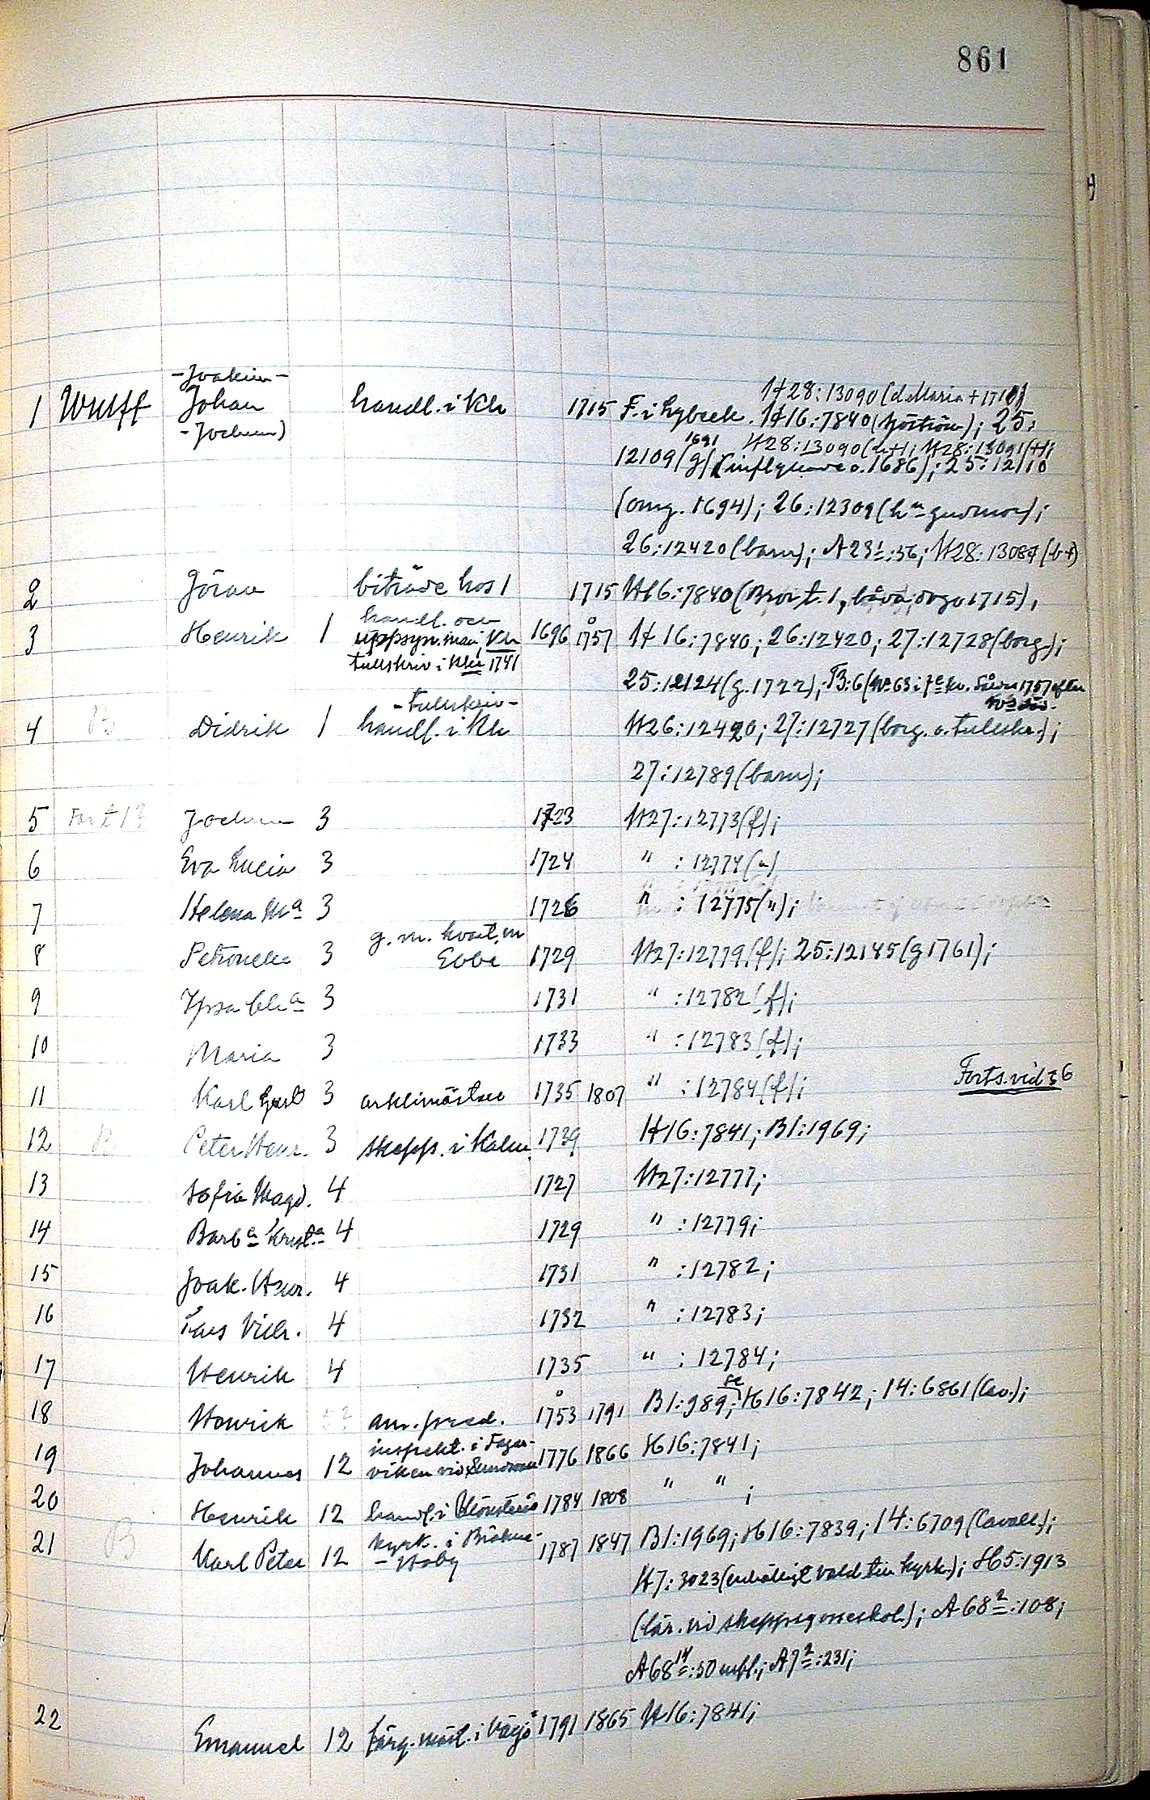 861
-Joakim-
H28:13090 (d. Maria +1710)
1 Wulff Johan handl. i Kh 1715 F. i Lybeck. H16:7840 (Sjöström); 25:
-Jochum)
1691 H28:13090 (h+); H28:13091 (+);
12109 (g) (inflyttade o. 1686); 25:12110
(omg. 1694); 26:12309 (hn gudmor);
26:12420 (barn); A231:36; H28:13087 (b+)
2 Göran biträde hos 1 1715 H16:7840 (Bror t. 1, båda dogo 1715),
handl. och
3 Henrik 1 uppsyn.man i Kh 1696 1757 H 16:7840; 26:12420; 27:12728 (borg.);
tullskriv i Kh 1741
25:12124 (g. 1722); B:6
-tullskriv-
4 B Didrik 1 handl. i Kh H26:12420; 27:12727 (borg. o. tullskr.);
27:12789 (barn);
5 Jochum 3 1723 H27:12773 (f);
6 Eva Lucia 3 1724 " : 12774 (")
7 Helena Ma 3 1726 " : 12775 (");
g. m. kvart.m
8 Petronella 3 Ebbe 1729 H27:12779 (f); 25:12145 (g 1761);
9 3 1731 " : 12782 (f);
10 Maria 3 1733 " : 12783 (f);
Forts. vid 36
11 Karl Gust 3 arklimästare 1735 1807 " : 12784 (f);
12 B Peter Henr. 3 skepps. i Kalm. 1739 H16:7841; B1:1969;
13 Sofia Magd. 4 1727 H27:12777;
14 Barba Krist.a 4 1729 " : 12779;
15 Joak. Henr. 4 1731 " : 12782;
16 Vilh. 4 1732 " : 12783;
17 Henrik 4 1735 " : 12784;
18 Henrik am. pred. 1753 1791 B1:989; H16:7842; 14:6861 (Cav.);
inspekt. i Fagar-
19 Johannes 12 viken vid 1776 1866 H16:7841;
20 Henrik 12 handl. i 1784 1808 " " ;
kyrk. i Bräkne-
21 B Karl Peter 12 -Hoby 1787 1847 B1:1969; H16:7839; 14:6709 (Cavall.);
H7:3023 (enhälligt vald till kyrkh.); H5:1913
(lär. vid skeppsgosseskol.); A 682:108;
A6814:50 utfl.; A72:231;
22 Emanuel 12 färg. mäst. i Växjö 1791 1865 H16:7841;